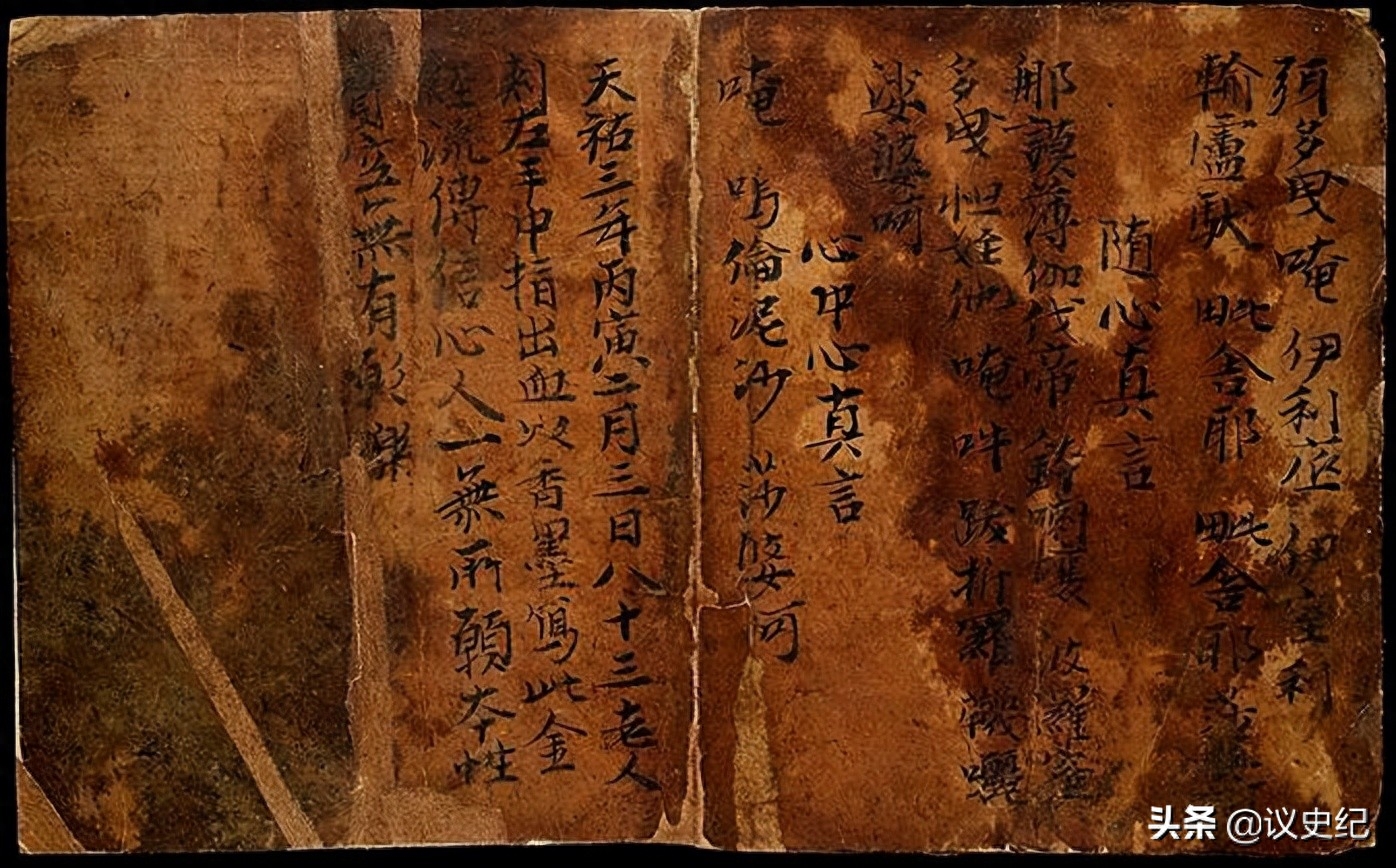 須多曳 唵 伊利底 伊室利
輸盧馱 毗舍耶 毗舍耶
随心真言
那謨薄伽伐帝 鉢 波羅蜜
多曳 怛姪他 唵 吽 跋折羅 囇
心中心真言
唵 嗚倫泥沙 莎婆呵
天祐三年丙寅二月三日八十三老人
刾左手中指出血以香墨寫此金
經流傳信心人一無所願本性
實空無有願樂
头条 @议史纪